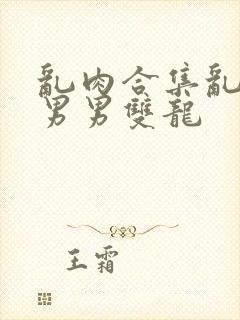 亂肉合集亂
男男雙龍
王霜